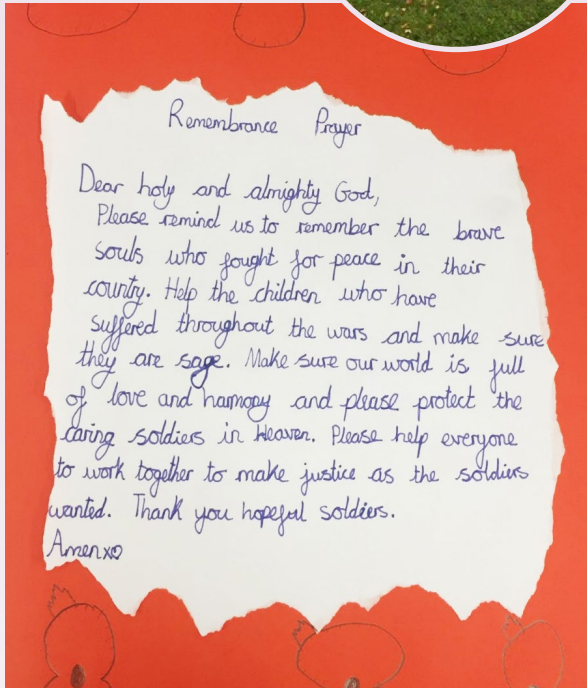 Remembrance Prayer
Dear holy and almighty God,
Please remind us to remember the brave
souls who fought for peace in their
country. Help the children who have
suffered throughout the wars and make sure
they are sage. Make sure our world is full
of love and harmony and please protect the
caring soldiers in Heaven. Please help everyone
to work together to make justice as the soldiers
wanted. Thank you hopeful soldiers.
Amen xo